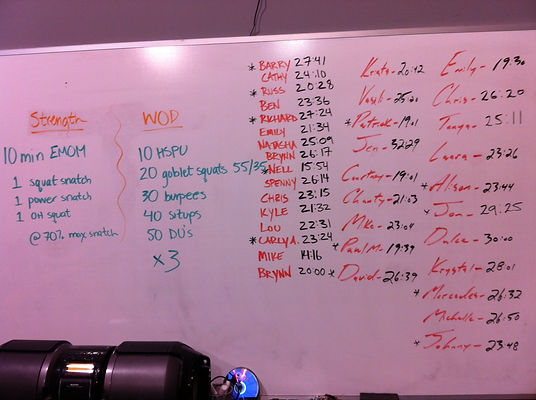 Strength
10 min EMOM
1 squat snatch
1 power snatch
1 OH squat
@ 70% max snatch
WOD
10 HSPU
20 goblet squats 55/35
30 burpees
40 situps
50 DU's
x3
* BARRY 27:41
CATHY 24:10
* RUSS 20:28
BEN 23:36
* RICHARD 27:24
EMILY 21:34
NATASHA 25:09
BRYNN 26:17
* NELL 15:54
SPENNY 26:14
CHRIS 23:15
KYLE 21:32
LOU 22:31
* CARLY A. 23:24
MIKE 14:16
BRYNN 20:00
Krats - 20:42
Vasili - 25:20
* Patrick - 19:01
Jen - 32:29
Courtney - 19:01
Chanty - 21:03
Mike - 23:04
* Paul M. - 19:39
* David - 26:39
Emily - 19:30
Chris - 26:20
Tanya - 25:11
Laura - 23:26
* Alison - 23:44
* Jon - 29:25
Dulce - 30:00
Krystal - 28:01
* Mercedes - 26:32
Michelle - 26:50
* Johnny - 23:48